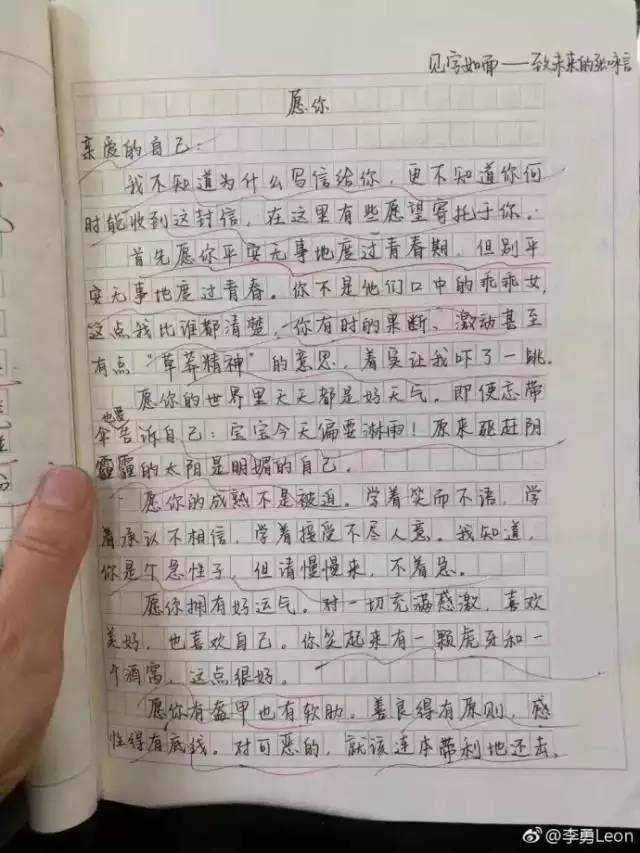 见字如面——致未来的张咏言
愿你
亲爱的自己:
我不知道为什么写信给你,更不知道你何
时能收到这封信,在这里有些愿望寄托于你。
首先愿你平安无事地度过青春期,但别平
安无事地度过青春。你不是他们口中的乖乖女,
这点我比谁都清楚,你有时的果断、激动甚至
有点“草莽精神”的意思,着实让我吓了一跳。
愿你的世界里天天都是好天气。即便忘带
伞也要告诉自己:宝宝今天偏要淋雨!原来驱赶阴
霾的太阳是明媚的自己。
愿你的成熟不是被迫。学着笑而不语,学
着承认不相信,学着接受不尽人意。我知道,
你是个急性子,但请慢慢来,不着急。
愿你拥有好运气。对一切充满感激,喜欢
美好,也喜欢自己。你笑起来有一颗虎牙和一
个酒窝,这点很好。
愿你有盔甲也有软肋。善良得有原则,感
性得有底线。对可恶的,就该连本带利地还去。
@李勇Leon